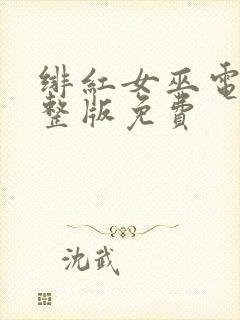 绯红女巫電
整版免費
沈武